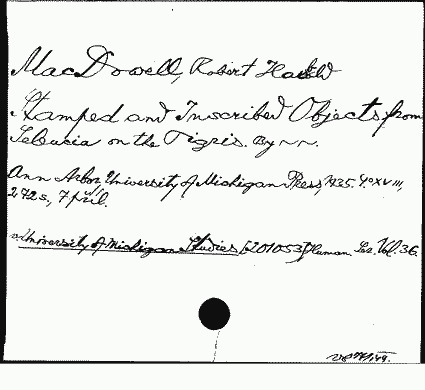 MacDowell, Robert Harold
Stamped and Inscribed Objects from
Seleucia on the Tigris. By ~~.
Ann Arbor University of Michigan Press, 1935. 4° XVIII,
272 s., 7 pl.
University of Michigan Studies [201053] Human. Ser. Vol. 36.